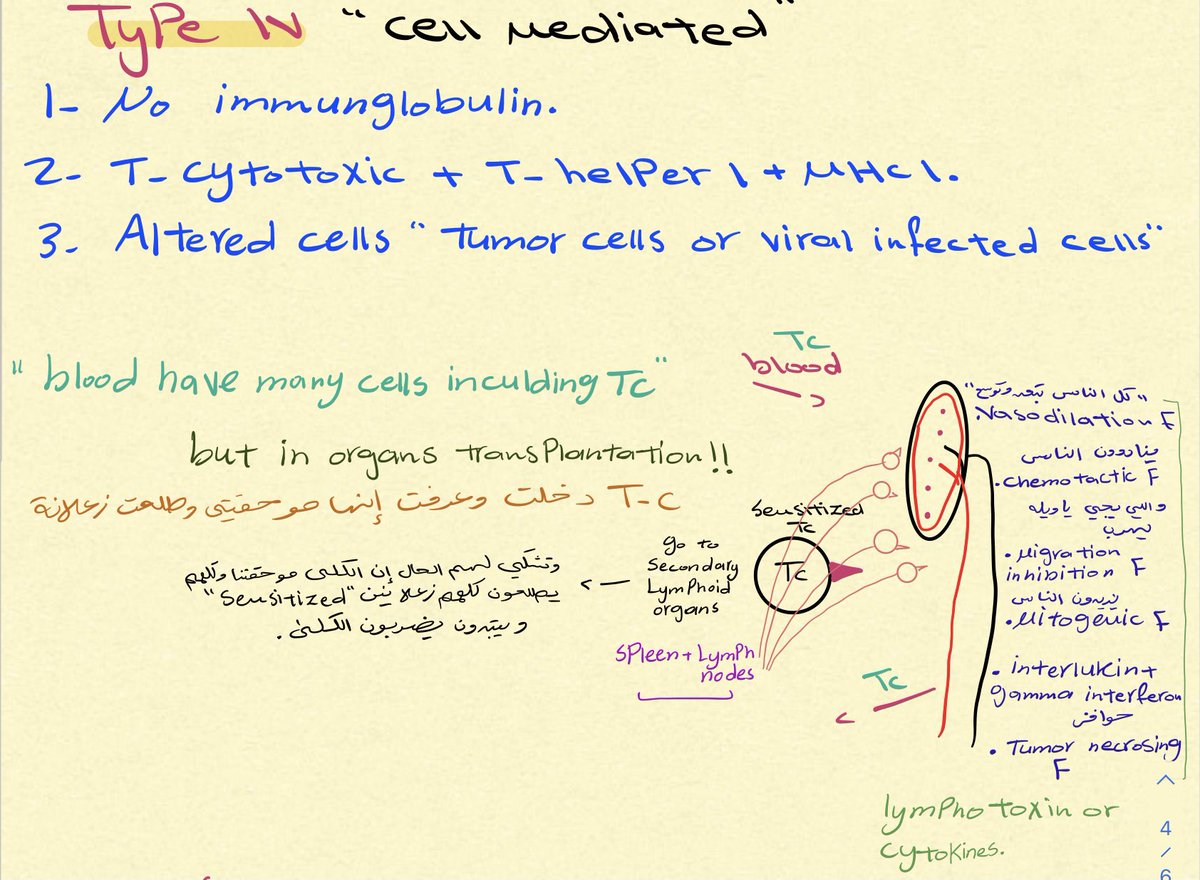 Type IV "cell mediated"
1- No immunglobulin.
2- T-cytotoxic + T-helper 1 + MHC1.
3- Altered cells "Tumor cells or viral infected cells"
"blood have many cells inculding Tc"
but in organs transplantation!!
T-c دخلت وعرفت إنها مو حقيتي وطلعت زعلانة
go to
Secondary
Lymphoid
organs
وتشكي لهم الحال إن الكلى مو حقتنا وكلهم
يطلعون كلهم زعلانين "Sensitized"
و يضربون الكلى.
Spleen + Lymph
nodes
Tc
blood
Sensitized
Tc
Tc
Tc
"كل الناس
.Vasodilation F
ينادون الناس
.chemotactic F
واللي يجي ياويله
يهرب
. Migration
inhibition F
الناس
. Mitogenic F
. interlukin +
gamma interferon
حوافز
. Tumor necrosing
F
lymphotoxin or
cytokines.
4
/
6